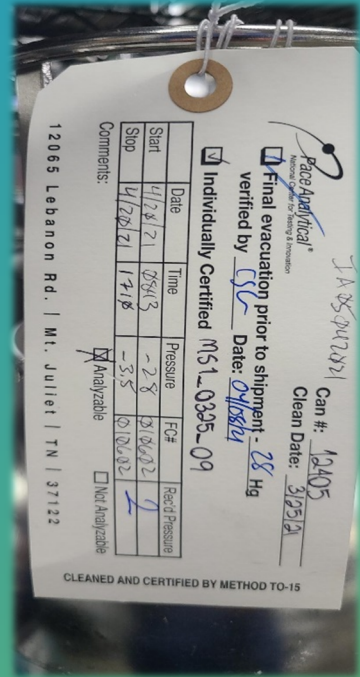 JA05042821
Pace Analytical®
National Center for Testing & Innovation
Can #: 12405
Clean Date: 3/25/21
Final evacuation prior to shipment - 28 Hg
verified by CSL Date: 04/08/21
Individually Certified MS1_0325_09
Date Time Pressure FC# Rec'd Pressure
Start 4/28/21 0843 -28
Stop 4/28/21 1710 -3.5 010602 2
Comments: Analyzable Not Analyzable
12065 Lebanon Rd. | Mt. Juliet | TN | 37122
CLEANED AND CERTIFIED BY METHOD TO-15